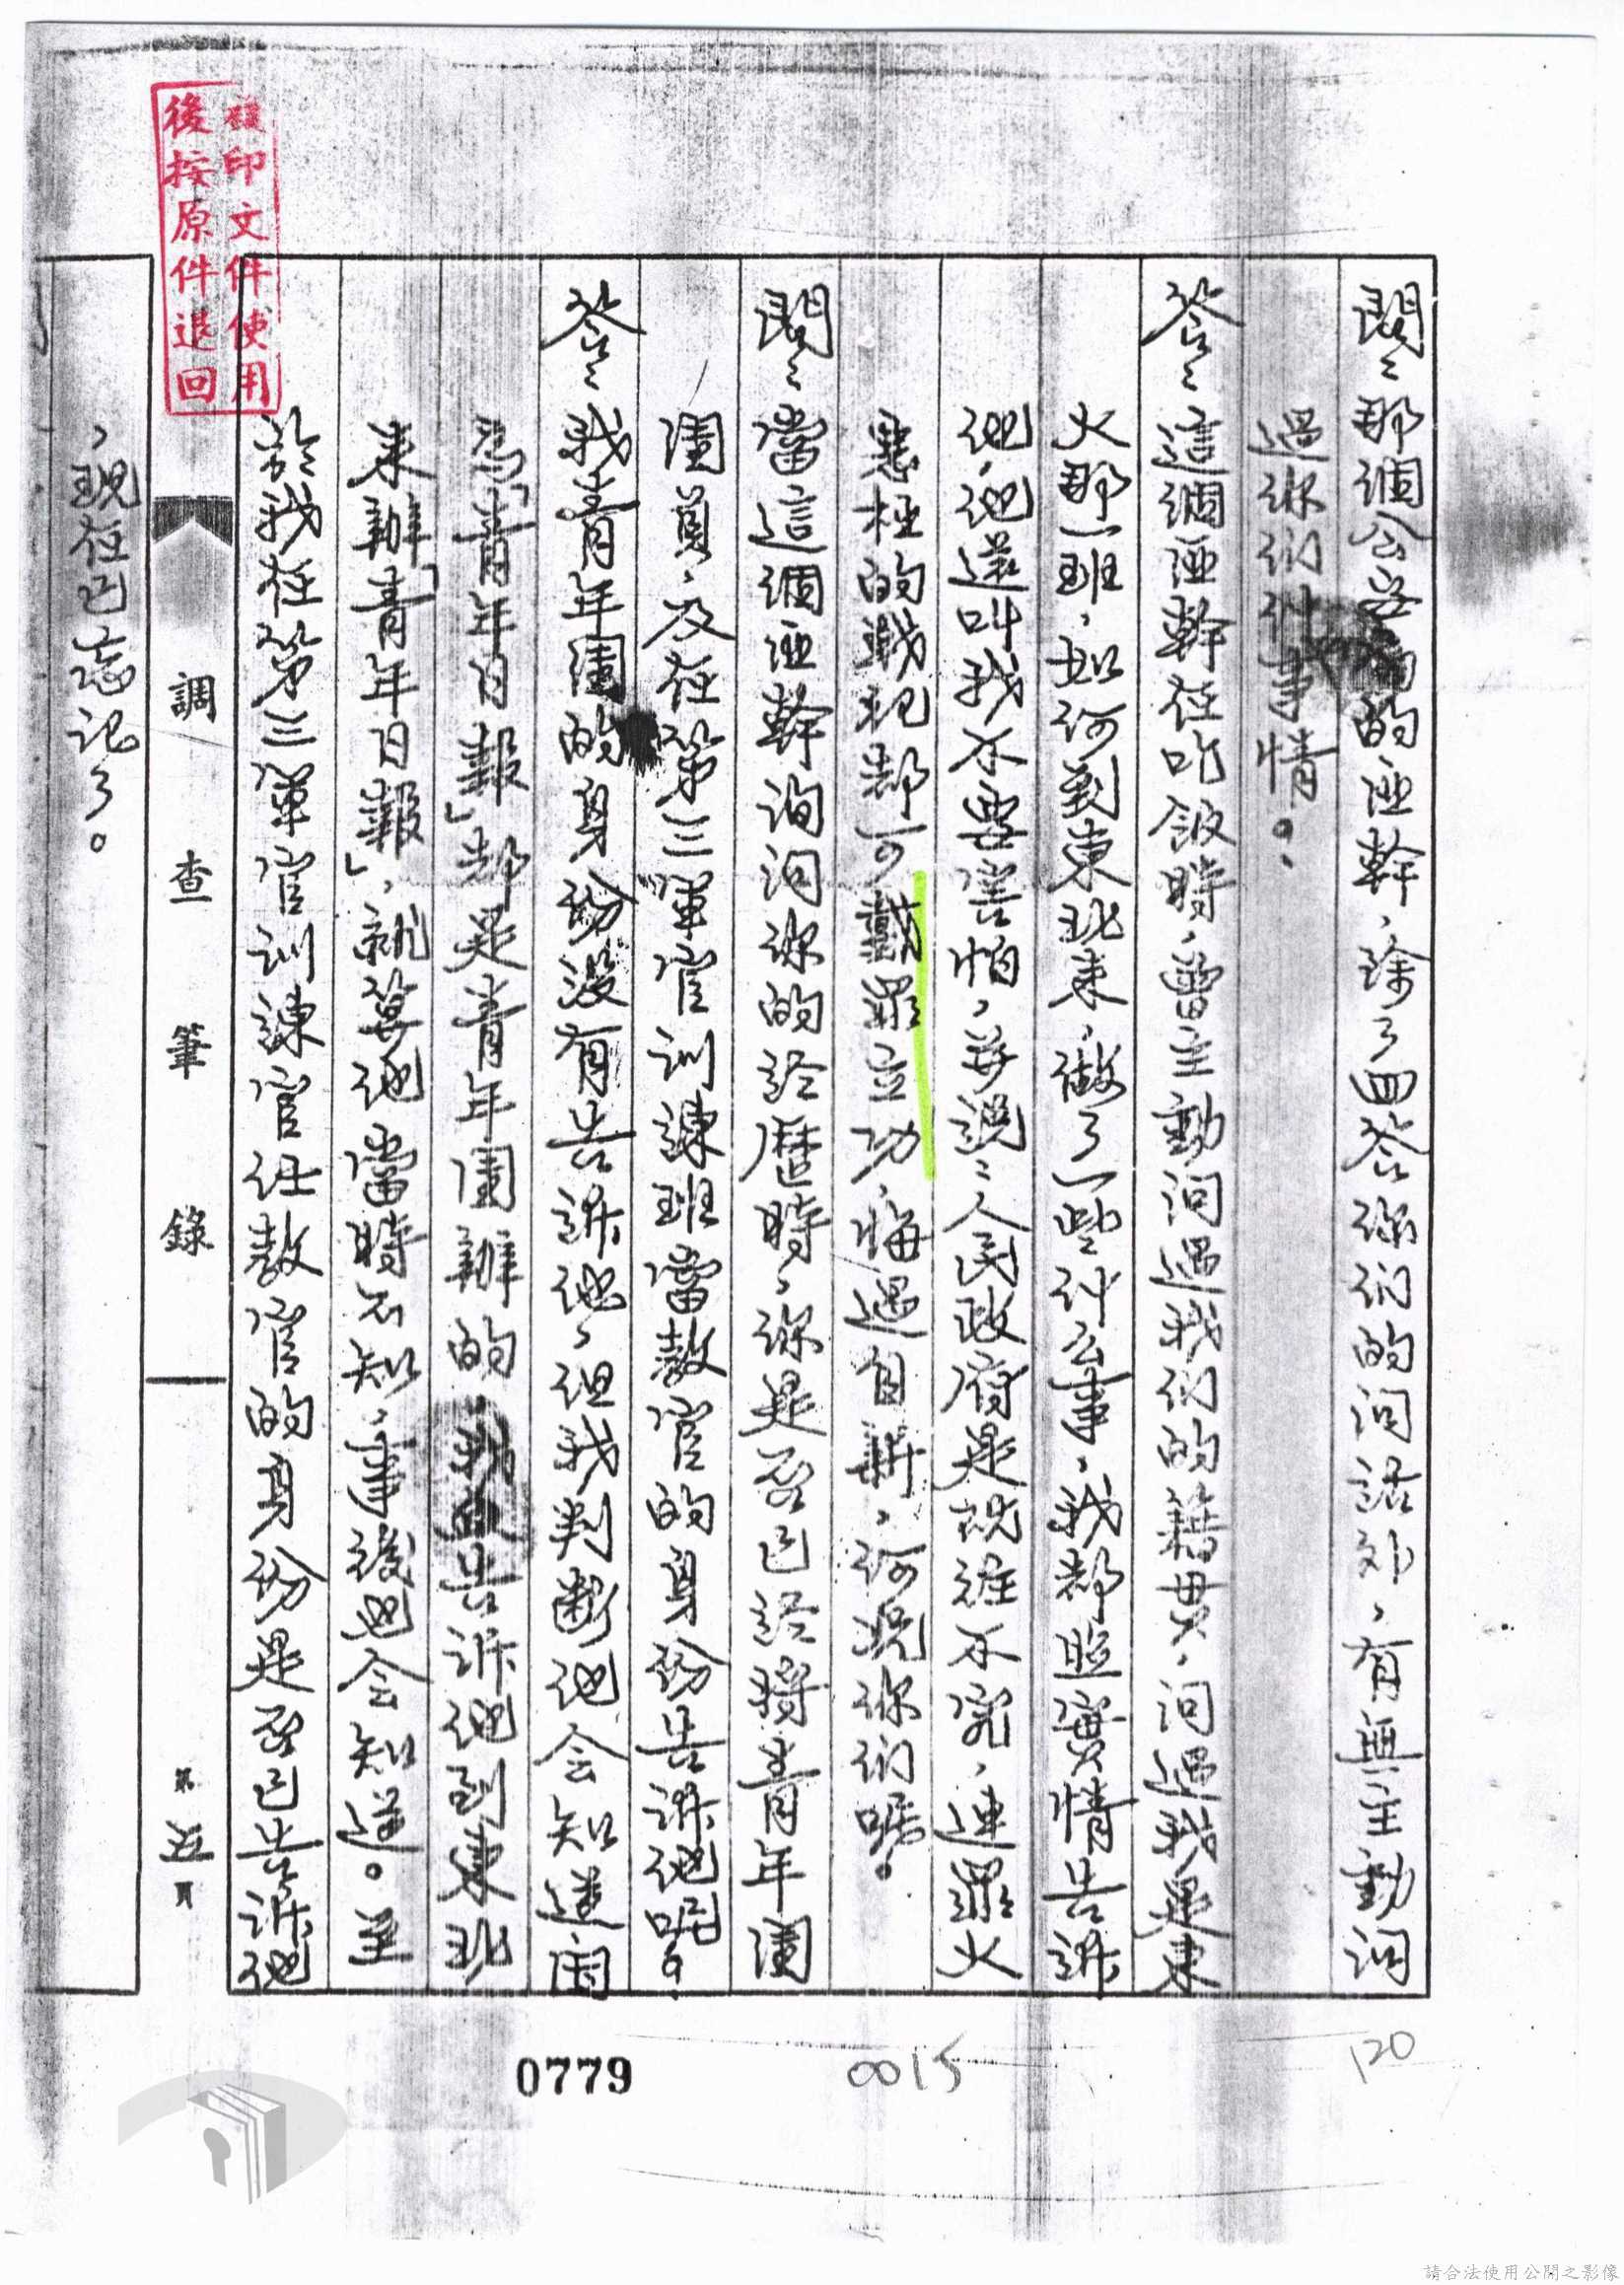 問:那個公安局的匪幹,除了回答你们的问話外,有無主動询
過你们什事情。
答:這個匪幹在吃飯時,曾主動问過我们的籍貫,问過我是東
火那一班,如何到東北来,做了一些什么事,我都照實情告訴
他,他還叫我不要害怕,并説:人民政府是既往不究,連罪大
惡極的戰犯都可戴罪立功,悔過自新,何况你们呢。
問:當這個匪幹询问你的経歷時,你是否已経將青年團
團員,及在第三軍官训練班當教官的身份告訴他呢?
答:我青年團的身份没有告訴他,但我判断他会知道因
為「青年日報」都是青年團辦的,我既告訴他到東北
来辦「青年日報」,就算他當時不知,事後也会知道。至
於我在第三軍官训練官任教官的身份是否已告訴他
,现在已忘记了。
調查筆錄
第五頁
複印文件使用
後按原件退回
0779
0015
120
請合法使用公開之影像